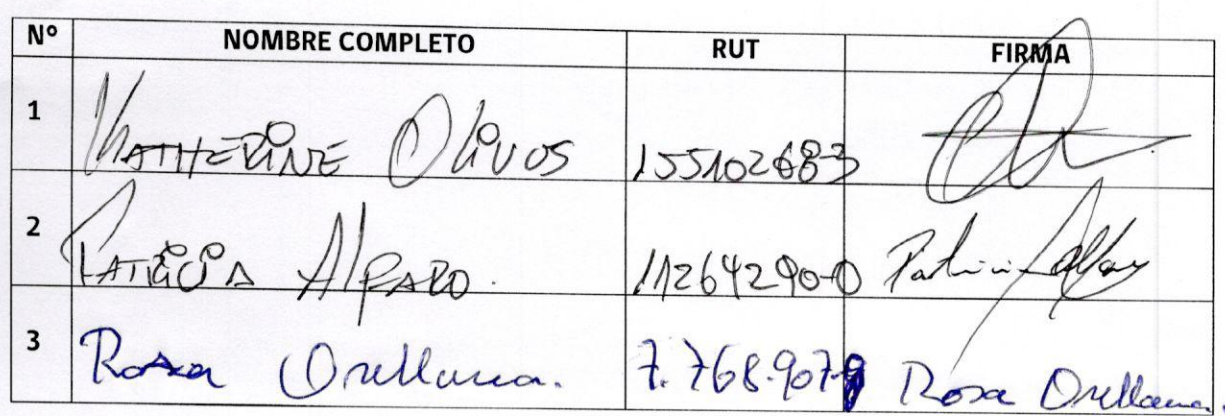 Nº NOMBRE COMPLETO RUT FIRMA
1 KATHERINE OLIVOS 15510268-3
2 PATRICIA AlFARO. 11264290-0 Patricia Alfaro
3 Rosa Orellana. 7.768.907-9 Rosa Orellana